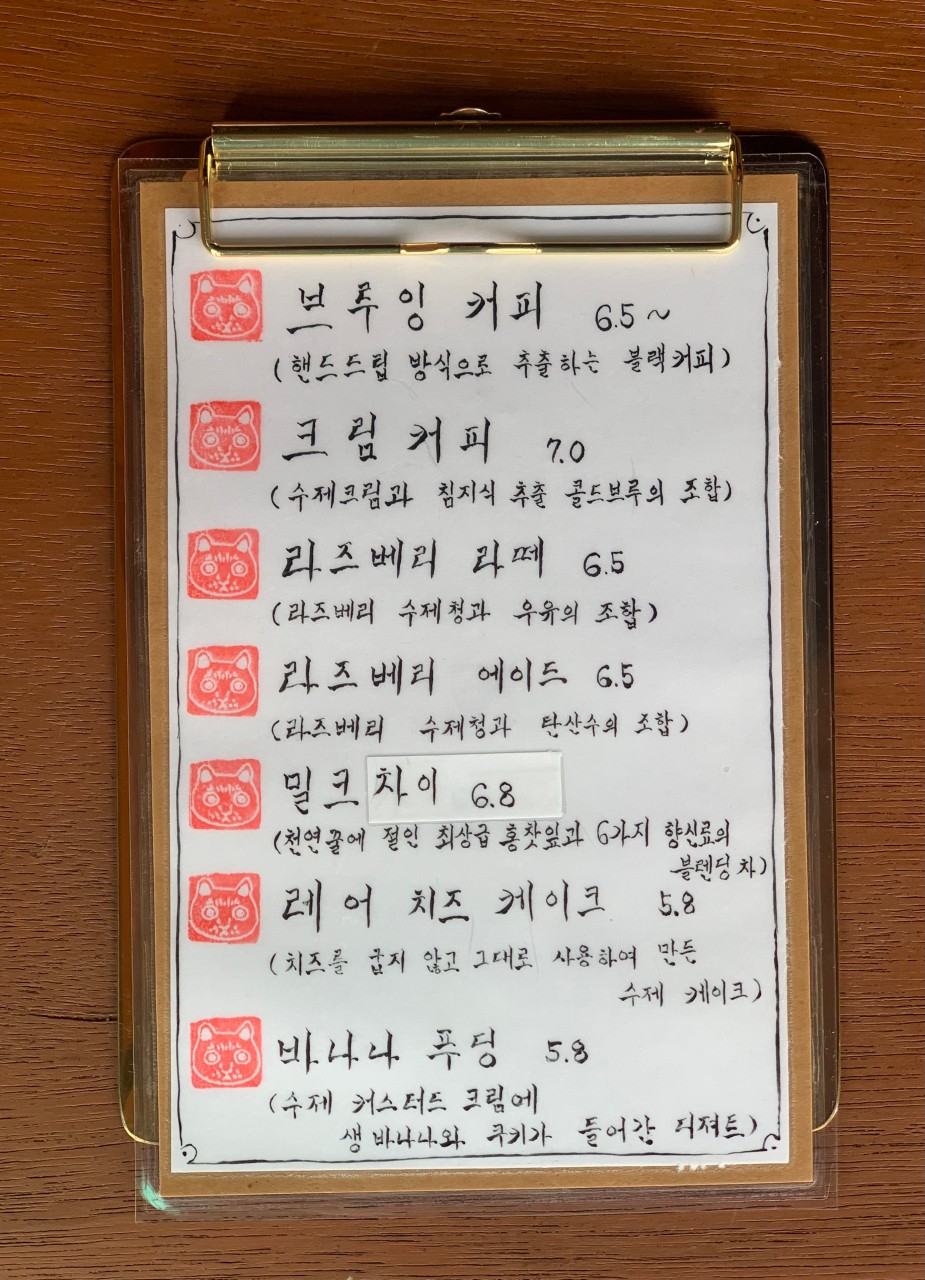 브루잉 커피 6.5~
(핸드드립 방식으로 추출하는 블랙커피)
크림커피 7.0
(수제크림과 침지식 추출 콜드브루의 조합)
라즈베리 라떼 6.5
(라즈베리 수제청과 우유의 조합)
라즈베리 에이드 6.5
(라즈베리 수제청과 탄산수의 조합)
밀크차이 6.8
(천연꿀에 절인 최상급 홍찻잎과 6가지 향신료의
블렌딩 차)
레어 치즈 케이크 5.8
(치즈를 굽지 않고 그대로 사용하여 만든
수제 케이크)
바나나 푸딩 5.8
(수제 커스터드 크림에
생바나나와 쿠키가 들어간 디저트)